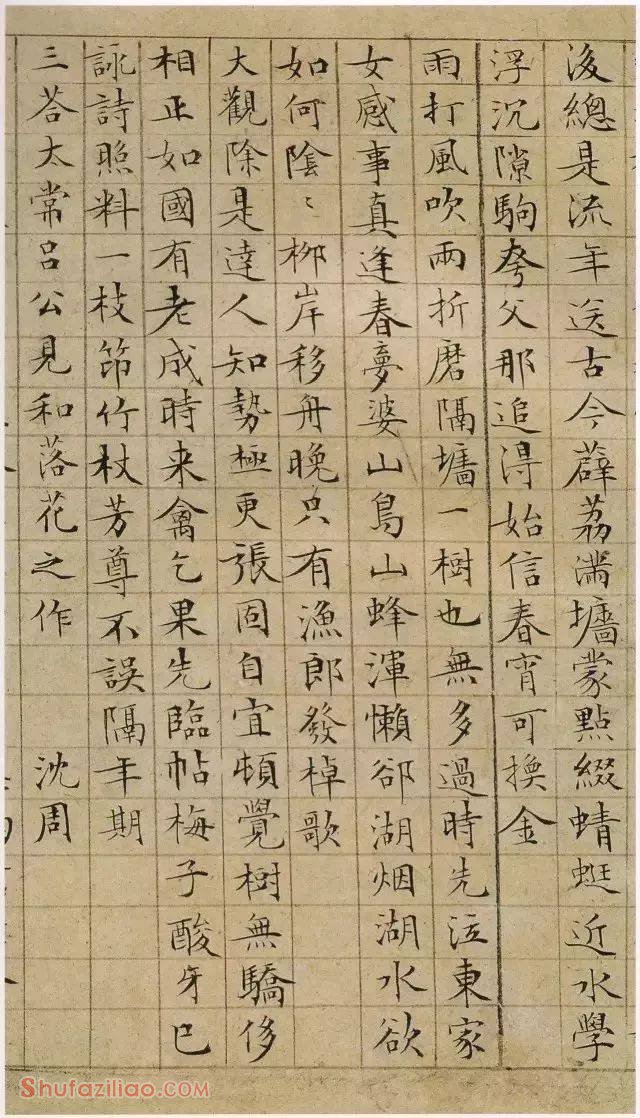 後總是流年送古今薜荔滿墻蒙點綴蜻蜓近水學
浮沉隙駒夸父那追得始信春宵可換金
雨打風吹兩折磨隔墻一樹也無多過時先泣東家
女感事真逢春夢婆山鳥山蜂渾懶卻湖烟湖水欲
如何陰〻柳岸移舟晚只有漁郎發棹歌
大觀除是達人知勢極更張固自宜頓覺樹無驕侈
相正如國有老成時来禽乞果先臨帖梅子酸牙巳
詠詩照料一枝笻竹杖芳尊不誤隔年期
三荅太常吕公見和落花之作 沈周
Shufaziliao.COM